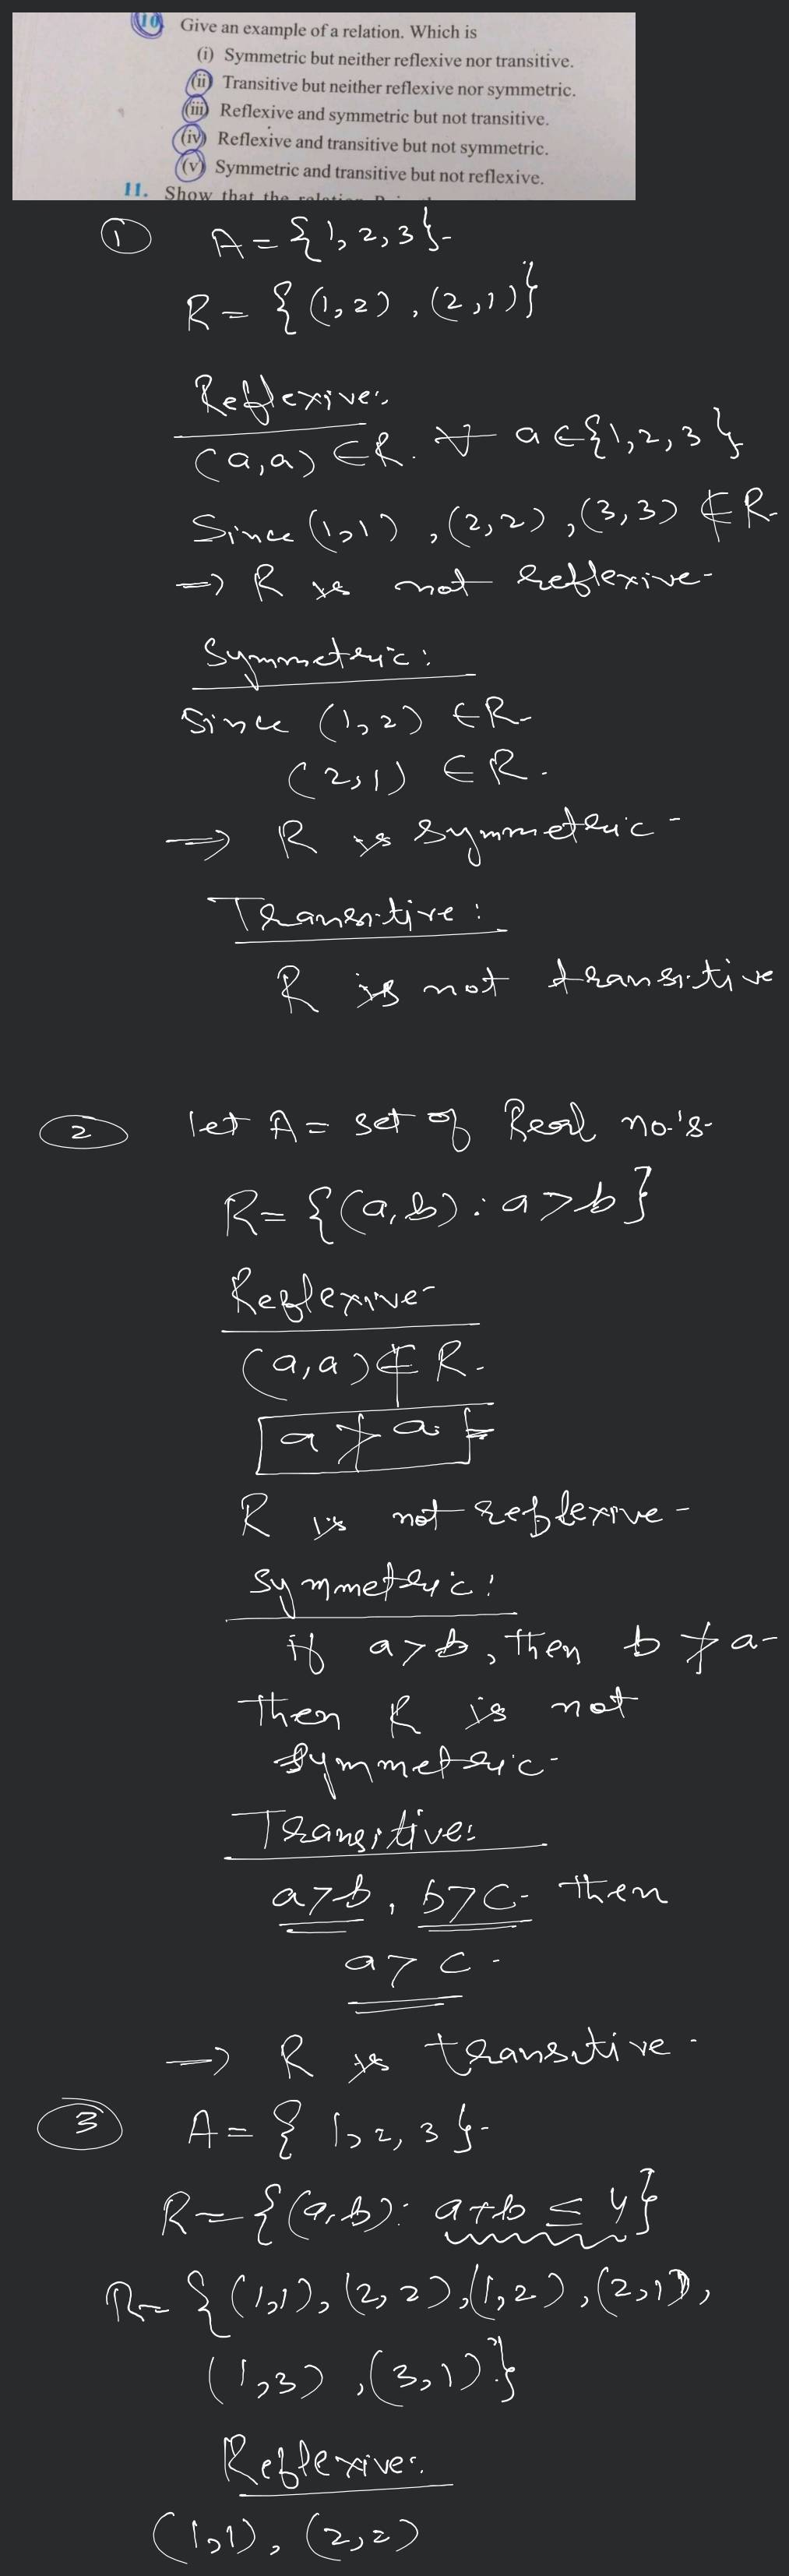 10. Give an example of a relation. Which is
(i) Symmetric but neither reflexive nor transitive.
(ii) Transitive but neither reflexive nor symmetric.
(iii) Reflexive and symmetric but not transitive.
(iv) Reflexive and transitive but not symmetric.
(v) Symmetric and transitive but not reflexive.
11. Show that the relation R
① A = {1, 2, 3}
R = {(1,2), (2,1)}
Reflexive:
(a,a) ∈ R. ∀ a ∈ {1,2,3}
Since (1,1), (2,2), (3,3) ∉ R.
⇒ R is not reflexive.
Symmetric:
Since (1,2) ∈ R.
(2,1) ∈ R.
⇒ R is symmetric.
Transitive:
R is not transitive
② let A = set of Real no.'s.
R = {(a,b) : a > b}
Reflexive
(a,a) ∉ R.
a ≯ a.
R is not reflexive.
Symmetric:
if a > b, then b ≯ a.
Then R is not
symmetric.
Transitive:
a > b, b > c. then
a > c.
⇒ R is transitive.
③ A = {1, 2, 3}.
R = {(a,b): a+b ≤ 4}
R = {(1,1), (2,2), (1,2), (2,1),
(1,3), (3,1)}
Reflexive:
(1,1), (2,2)